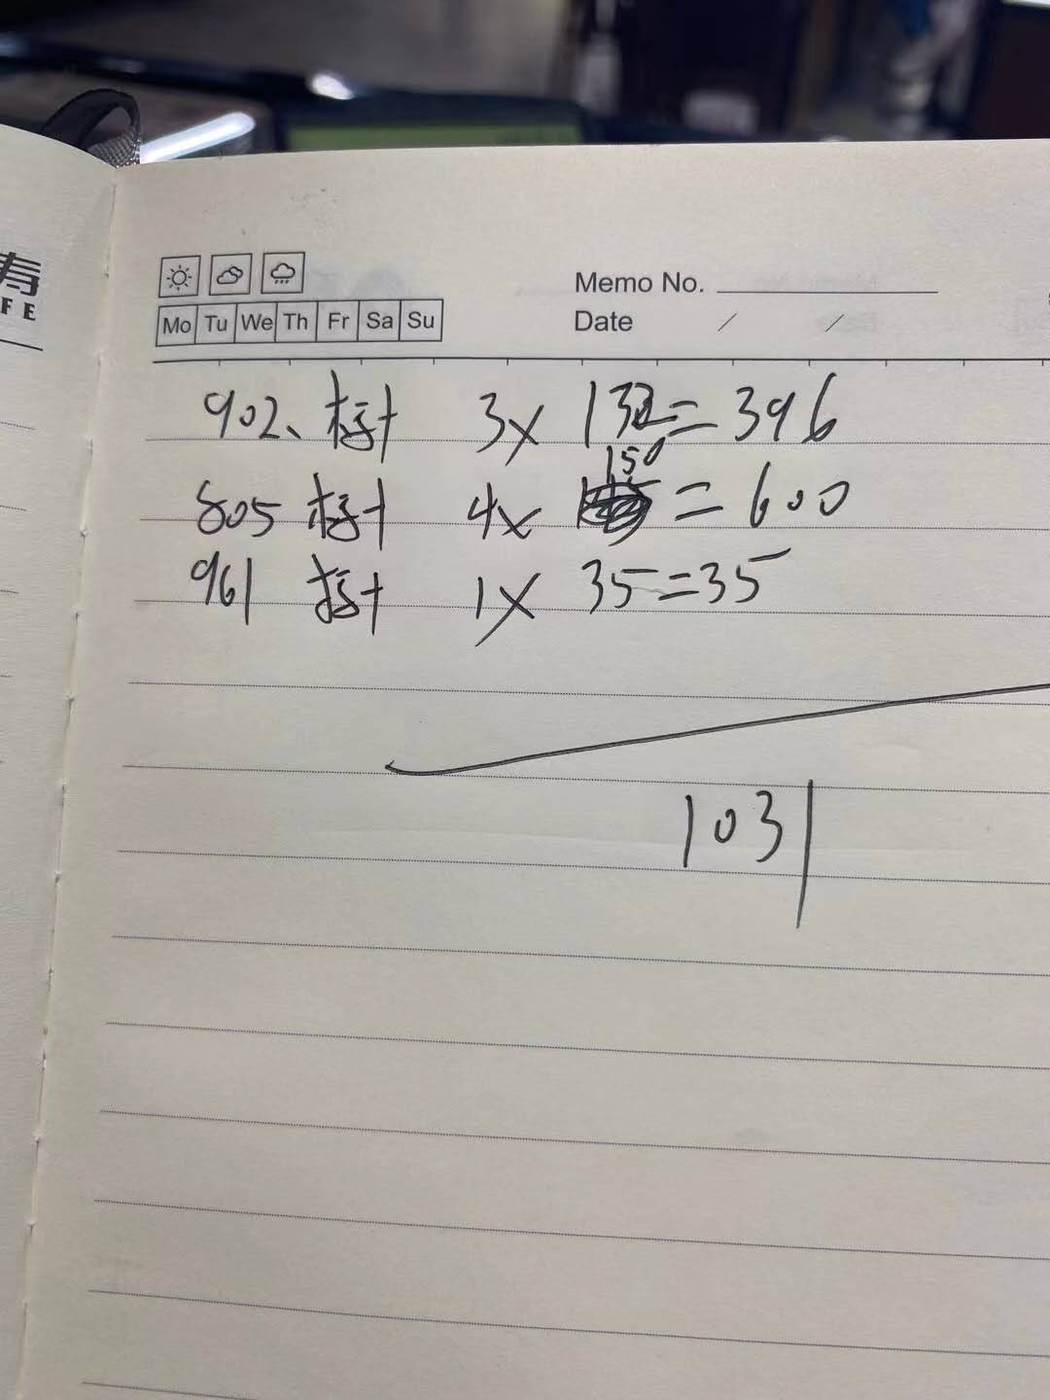 寿
FE
Memo No.
Mo Tu We Th Fr Sa Su
Date / /
902、标计 3x 132=396
805 标计 4x 150=600
961 标计 1x 35=35
1031